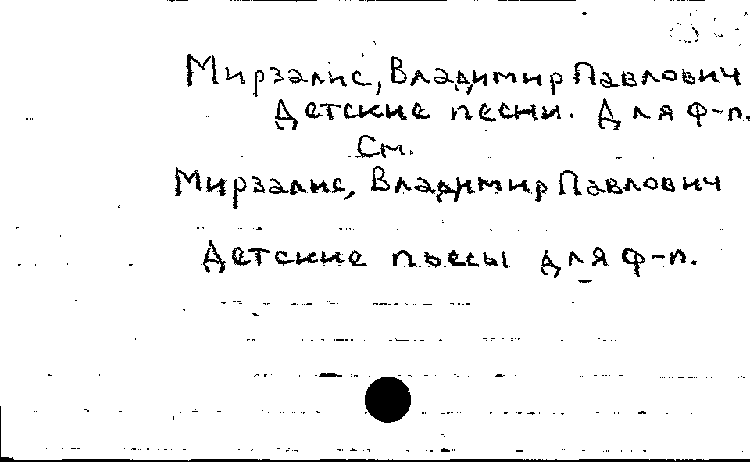 Мирзалис, Владимир Павлович
Детские песни. Для ф-п.
См.
Мирзалис, Владимир Павлович
Детские пьесы для ф-п.